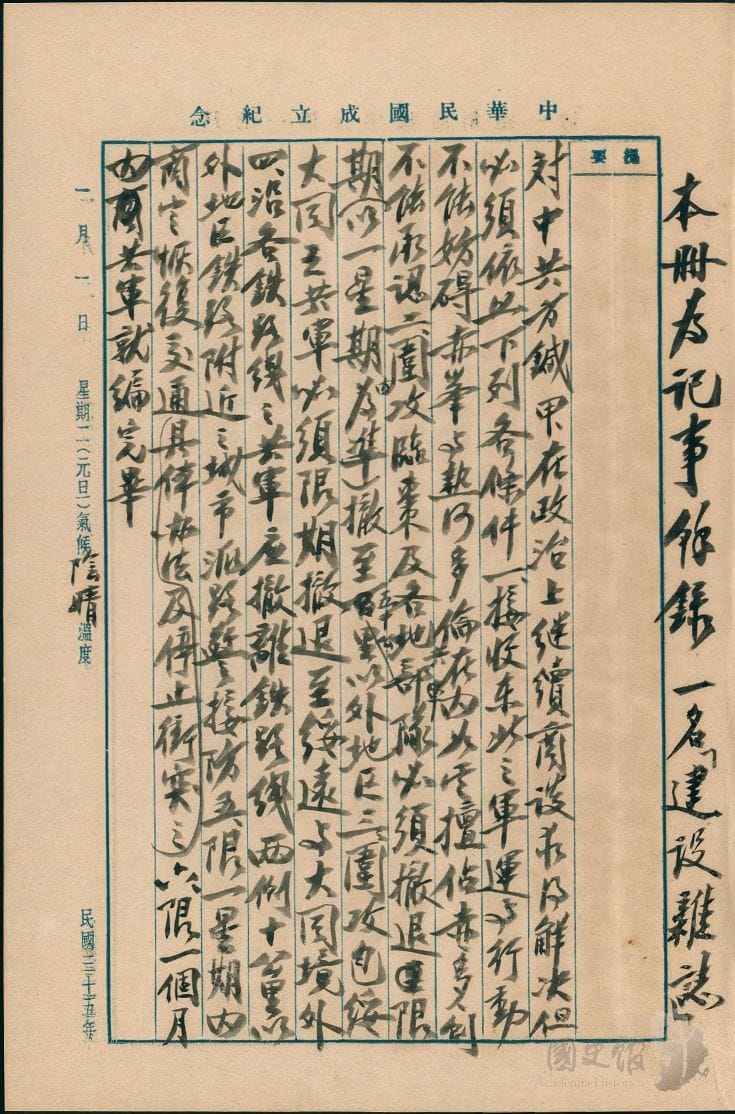 本冊為記事錄 一名「建設雜誌」
中華民國成立紀念
提要
對中共方鍼 甲在政治上繼續商談求得解決但
必須依照下列各條件一、接收東北之軍運與行動
不能妨碍赤峯與熱河多倫在內共軍擅佔赤多
不能承認二、圍攻臨棗及各地部隊必須撤退限
期(以一星期內為準)撤至百里以外地區三、圍攻包綏
大同之共軍必須限期撤退至綏遠與大同境外
四、沿各鉄路綫之共軍應撤離鉄路綫兩側十公里以
外地區鉄路附近之城市派路警接防五、限一星期內
商定恢復交通具体办法及停止衝突之 六、限一個月
內商共軍就編完畢
一月一日 星期二(元旦)氣候 陰晴 溫度
民國三十五年
國史館
Academia Historica